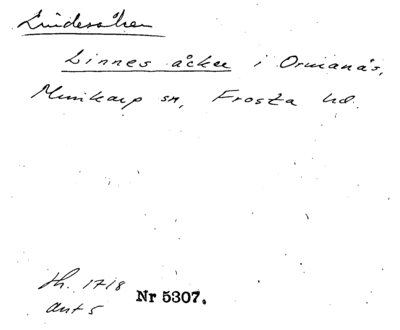 Lindesåker
Linnes åcker i Ormanäs,
Munkarp sn, Frosta hd.
th. 1718
ant 5
Nr 5307.